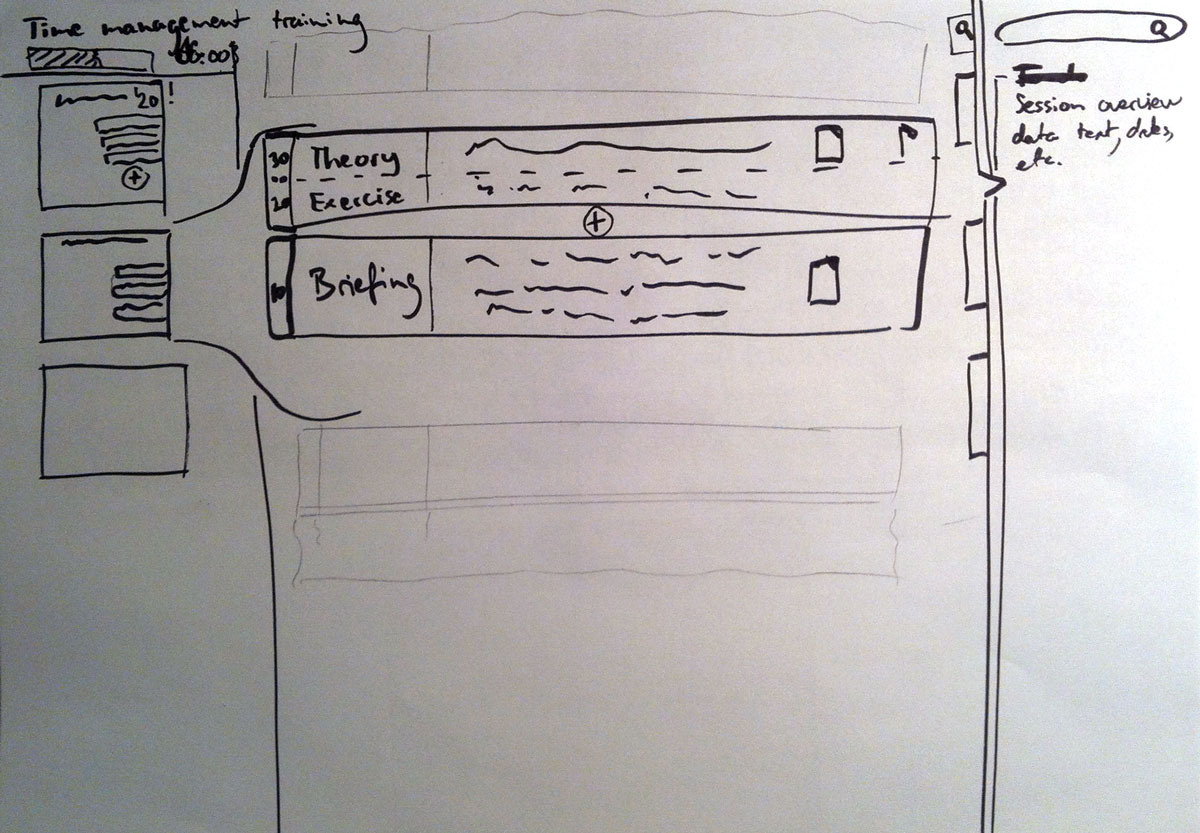 Time management training
:00
'20 !
30 Theory
20 Exercise
10 Briefing
Session overview
data text, dates,
etc.